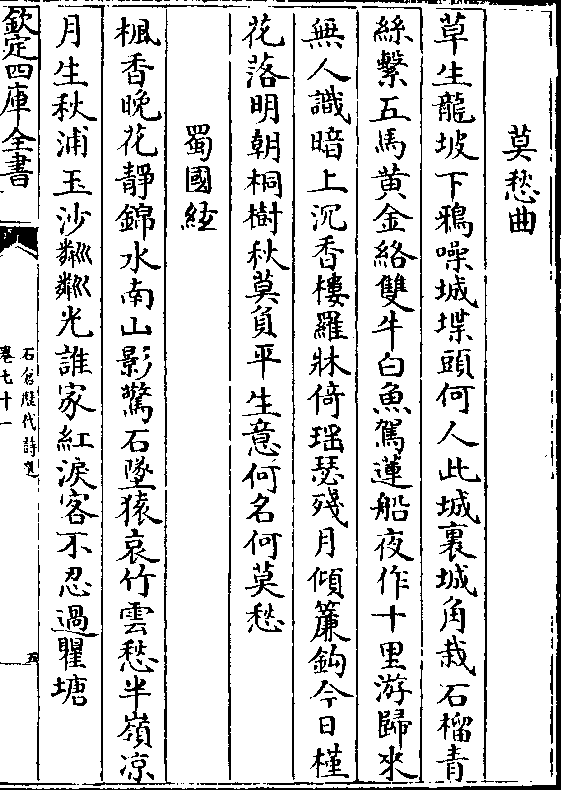 莫愁曲
草生龍坡下鴉噪城堞頭何人此城裏城角栽石榴青
絲繫五馬黄金絡雙牛白魚駕蓮船夜作十里游歸來
無人識暗上沉香樓羅牀倚瑶瑟殘月傾簾鈎今日槿
花落明朝桐樹秋莫負平生意何名何莫愁
蜀國絃
楓香晚花靜錦水南山影驚石墜猿哀竹雲愁半嶺凉
月生秋浦玉沙粼粼光誰家紅淚客不忍過瞿塘
欽定四庫全書
石倉歴代詩選
卷七十一
五